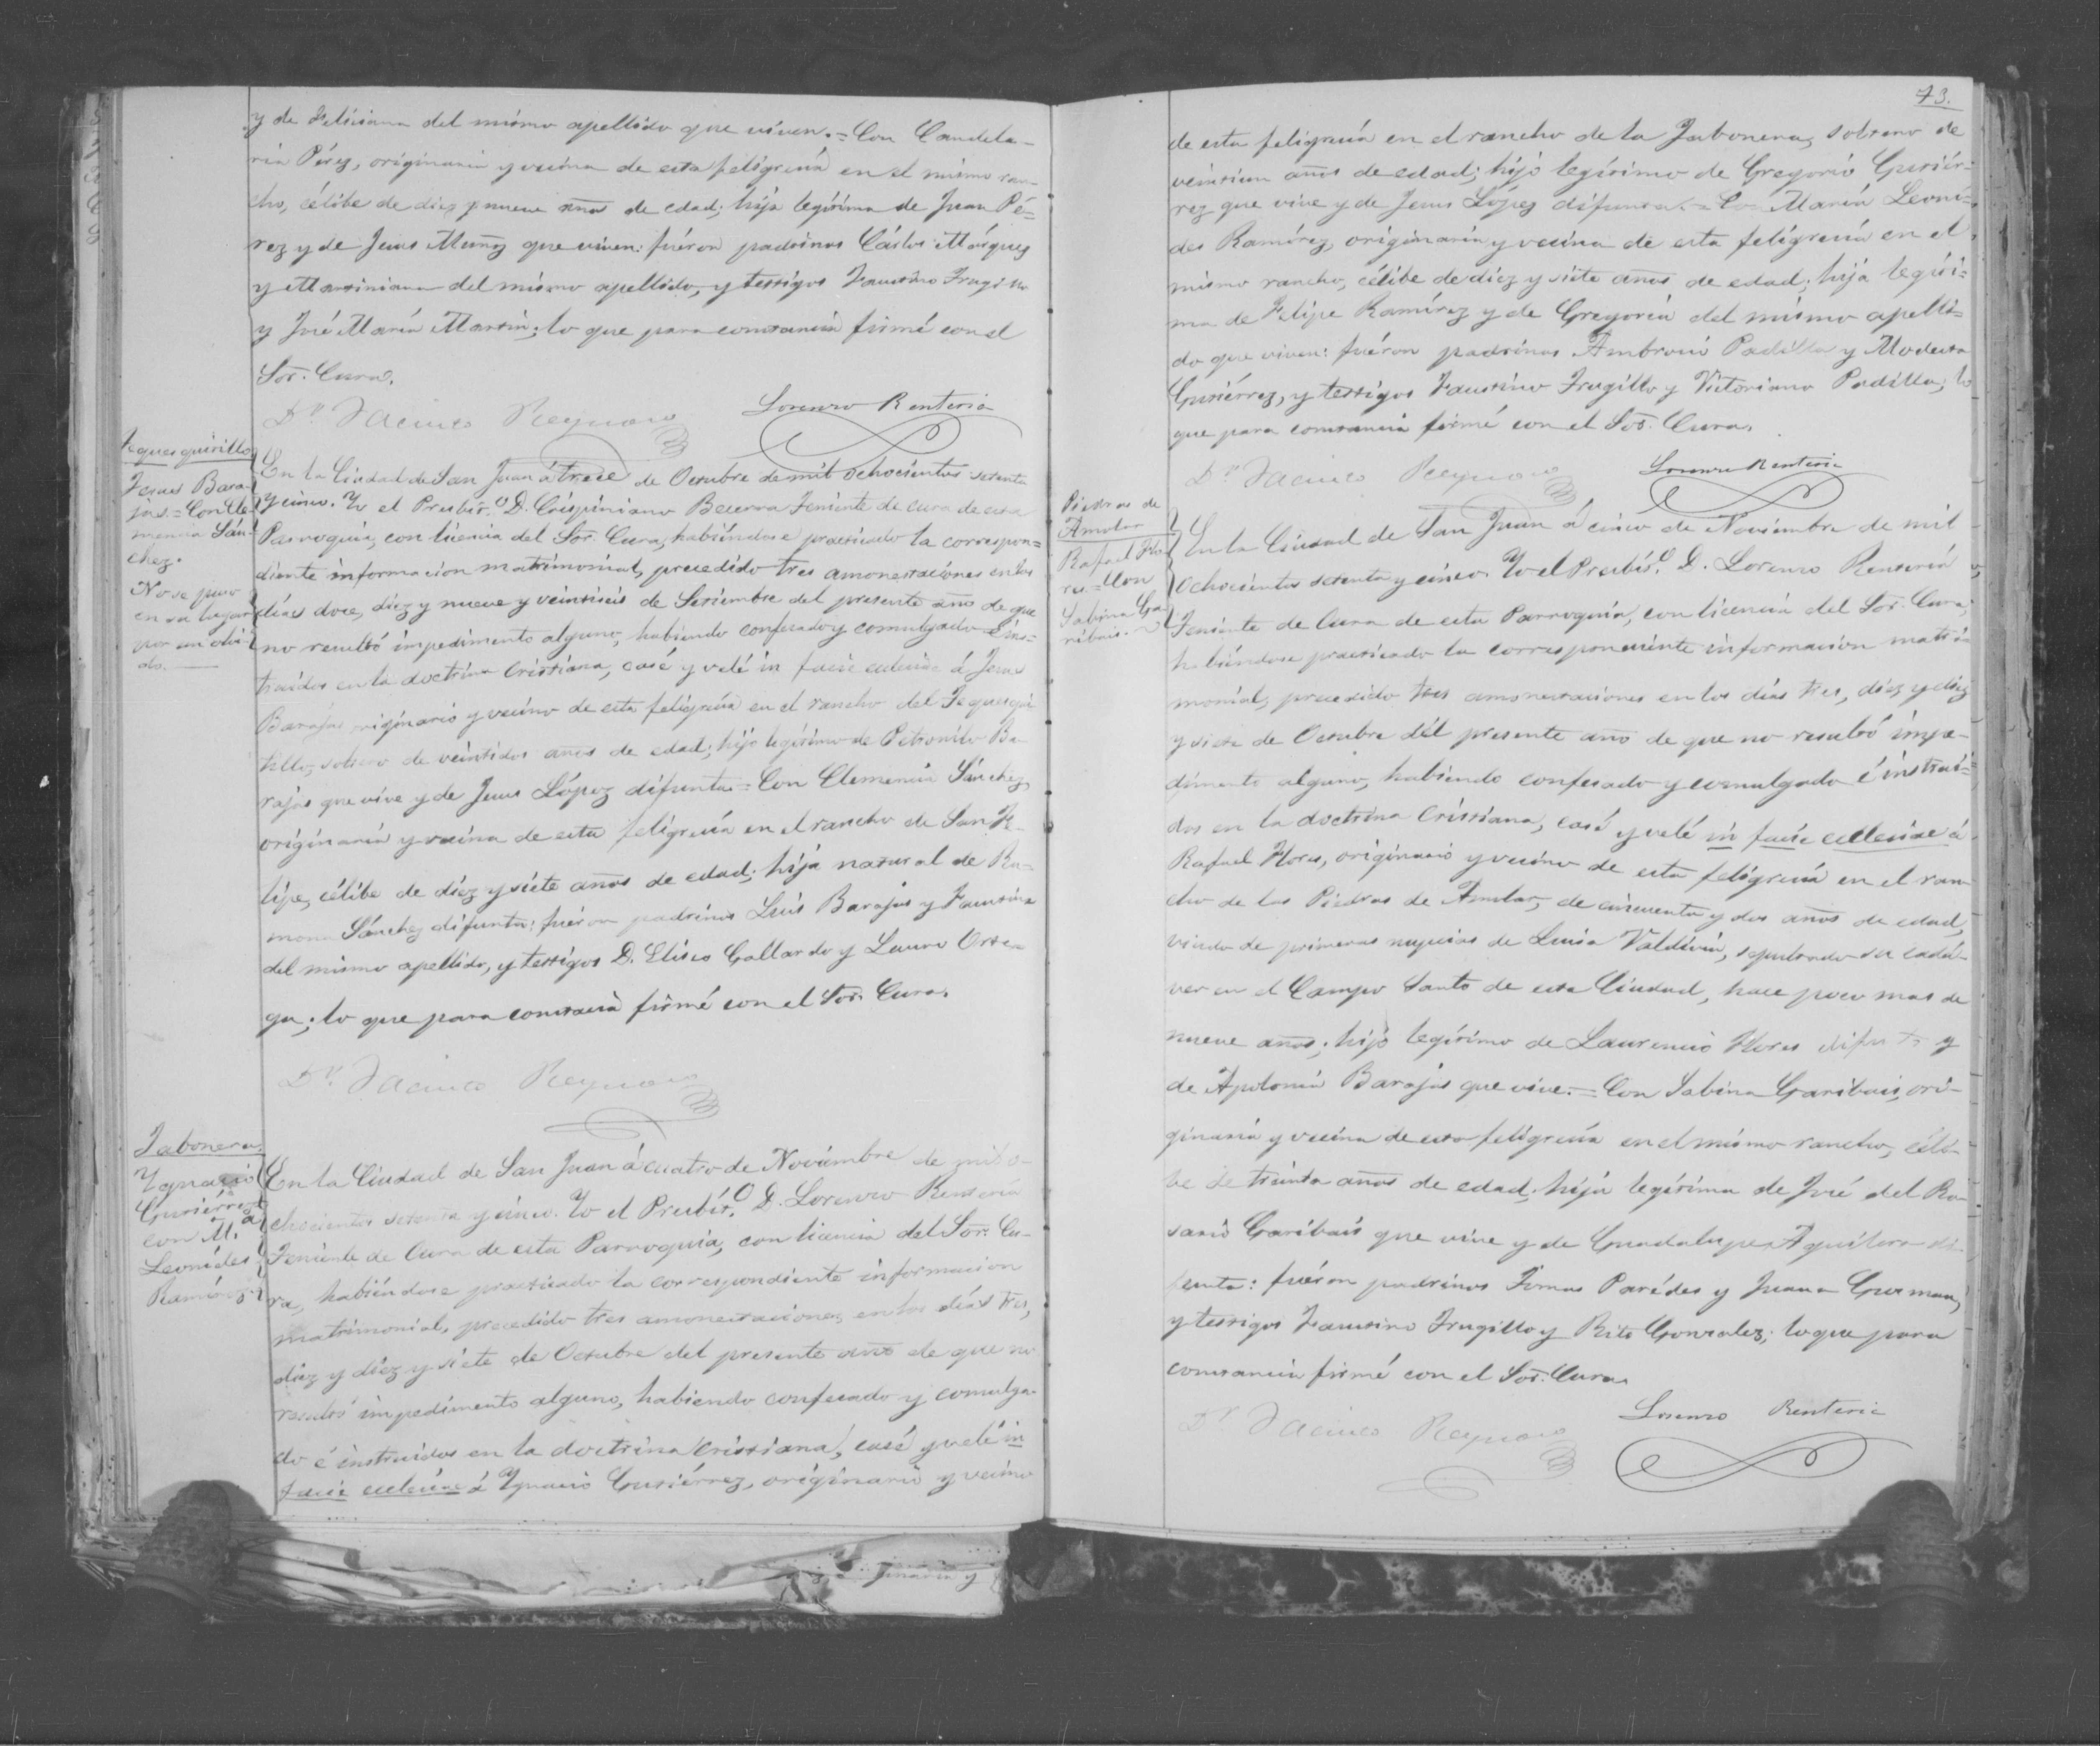 y de Feliciana del mismo apellido que viven. = Con Candela-
ria Pérez, originaria y vecina de esta feligresía en el mismo ran-
cho, célibe de diez y nueve años de edad; hija legítima de Juan Pé=
rez y de Jesus Muñoz que viven: fuéron padrinos Cárlos Márquez
y Marciniana del mismo apellido, y testigos Faustino Trugillo
y José María Martin; lo que para constancia firmé con el
Sor. Cura.
Dr. Jacinto Reynoso
Lorenzo Renteria
Tequesquitillo
Jesus Bara-
jas = Con Cle-
mencia Sán-
chez.
No se puso
en su lugar
por un olvi-
do.
En la Ciudad de San Juan á trece de Octubre de mil ochocientos setenta
y cinco. Yo el Presbít.o D. Crispiniano Becerra Teniente de cura de esta
Parroquia, con licencia del Sor. Cura, habiéndose practicado la correspon=
diente informacion matrimonial, precedido tres amonestaciones en los
días doce, diez y nueve y veintiseis de Setiembre del presente año de que
no resultó impedimento alguno, habiendo confesado y comulgado é ins=
truidos en la doctrina Cristiana, casé y velé in facie eclecise á Jesus
Barajas originario y vecino de esta feligresía en el rancho del Tequesqui
tillo, soltero de veintidos años de edad; hijo legítimo de Petronilo Ba-
rajas que vive y de Jesus López difunta = Con Clemencia Sánchez,
originaria y vecina de esta feligresía en el rancho de San Fe-
lipe, célibe de diez y siete años de edad; hija natural de Ra-
mona Sánchez difunta: fuéron padrinos Luis Barajas y Faustina
del mismo apellido, y testigos D. Eliseo Gallardo y Lauro Orte-
ga; lo que para constancia firmé con el Sor. Cura.
Dr. Jacinto Reynoso
Jabonera.
Ygnacio
Gutiérrez
con M.a
Leonides
Ramírez
En la Ciudad de San Juan á cuatro de Noviembre de mil o-
chocientos setenta y cinco. Yo el Presbít.o D. Lorenzo Rentería
Teniente de Cura de esta Parroquia, con licencia del Sor. Cu-
ra, habiéndose practicado la correspondiente informacion
matrimonial, precedido tres amonestaciones en los días tres,
diez y diez y siete de Octubre del presente año de que no
resultó impedimento alguno, habiendo confesado y comulga-
do é instruidos en la doctrina Cristiana, casé y velé in
facie eclecise á Ygnacio Gutiérrez, originario y vecino
73.
de esta feligresía en el rancho de la Jabonera, soltero de
veintiun años de edad; hijo legítimo de Gregorio Gutiér-
rez que vive y de Jesus López difunta. = Con María Leoni-
des Ramírez, originaria y vecina de esta feligresía en el
mismo rancho, célibe de diez y siete años de edad; hija legíti=
ma de Felipe Ramírez y de Gregoria del mismo apelli=
do que viven: fuéron padrinos Ambrosio Padilla y Modesta
Gutiérrez, y testigos Faustino Trugillo y Victoriano Padilla; lo
que para constancia firmé con el Sor. Cura.
Dr. Jacinto Reynoso
Lorenzo Renteria
Piedras de
Amolar
Rafael Flo-
res = Con
Sabina Ga-
ribais.
En la Ciudad de San Juan á cinco de Noviembre de mil
ochocientos setenta y cinco. Yo el Presbít.o D. Lorenzo Rentería
Teniente de Cura de esta Parroquia, con licencia del Sor. Cura,
habiéndose practicado la correspondiente informacion matri-
monial, precedido tres amonestaciones en los días tres, diez y diez
y siete de Octubre del presente año de que no resultó impe-
dimento alguno, habiendo confesado y comulgado é instrui=
dos en la doctrina Cristiana, casé y velé in facie eclecise á
Rafael Flores, originario y vecino de esta feligresía en el ran-
cho de las Piedras de Amolar, de cincuenta y dos años de edad,
viudo de primeras nupcias de Luisa Valdivia, sepultado su cadá-
ver en el Campo Santo de esta Ciudad, hace poco mas de
nueve años; hijo legítimo de Laurencio Flores difunto y
de Apolonia Barajas que vive. = Con Sabina Garibais, ori-
ginaria y vecina de esta feligresía en el mismo rancho, céli-
be de treinta años de edad, hija legítima de José del Ro-
sario Garibais que vive y de Guadalupe Aguilera di-
funta: fuéron padrinos Tomas Parédes y Juana Guzman,
y testigos Faustino Trugillo y Rito Gonzalez; lo que para
constancia firmé con el Sor. Cura.
Dr. Jacinto Reynoso
Lorenzo Renteria